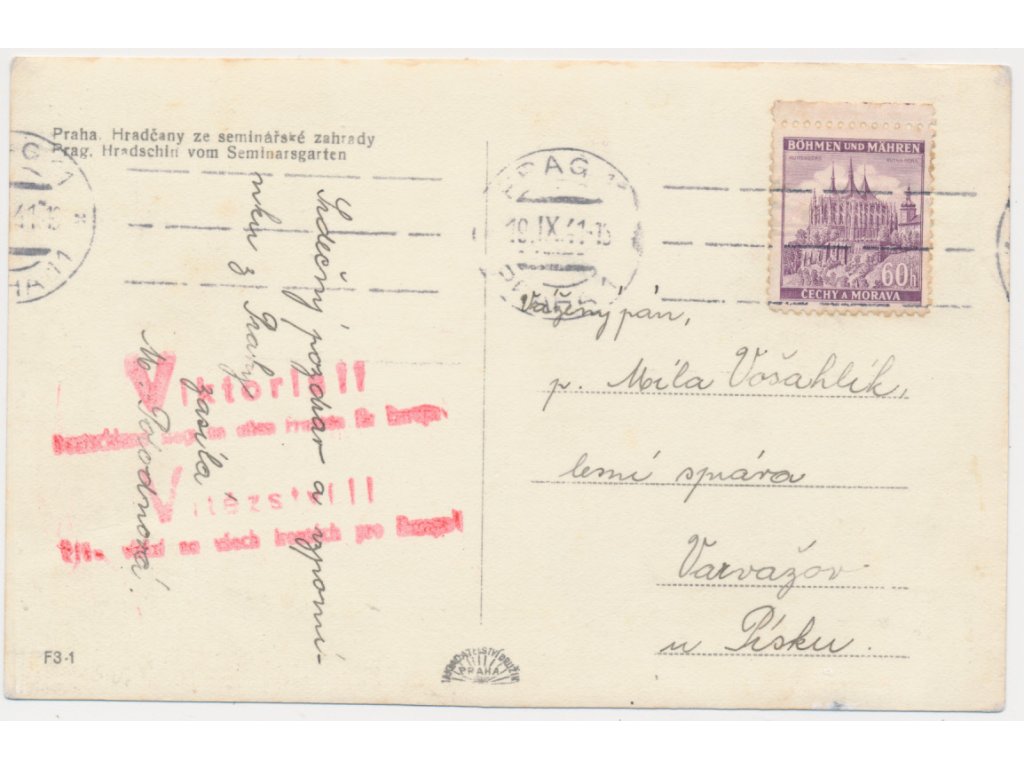 Praha. Hradčany ze seminářské zahrady
Prag. Hradschin vom Seminarsgarten
Srdečný pozdrav a vzpomí-
nku z Prahy
zasílá
M. Pojednová.
Viktoria!!
Deutschland siegt an allen Fronten für Europa
Vítězství!!
vítězí na všech frontách pro Evropu!
F3-1
PRAG 1
19.IX.41-15
41-15
BÖHMEN UND MÄHREN
60h
ČECHY A MORAVA
Vážený pán,
p. Míla Vošahlík,
lesní správa
Varvažov
u Písku.
PRAHA